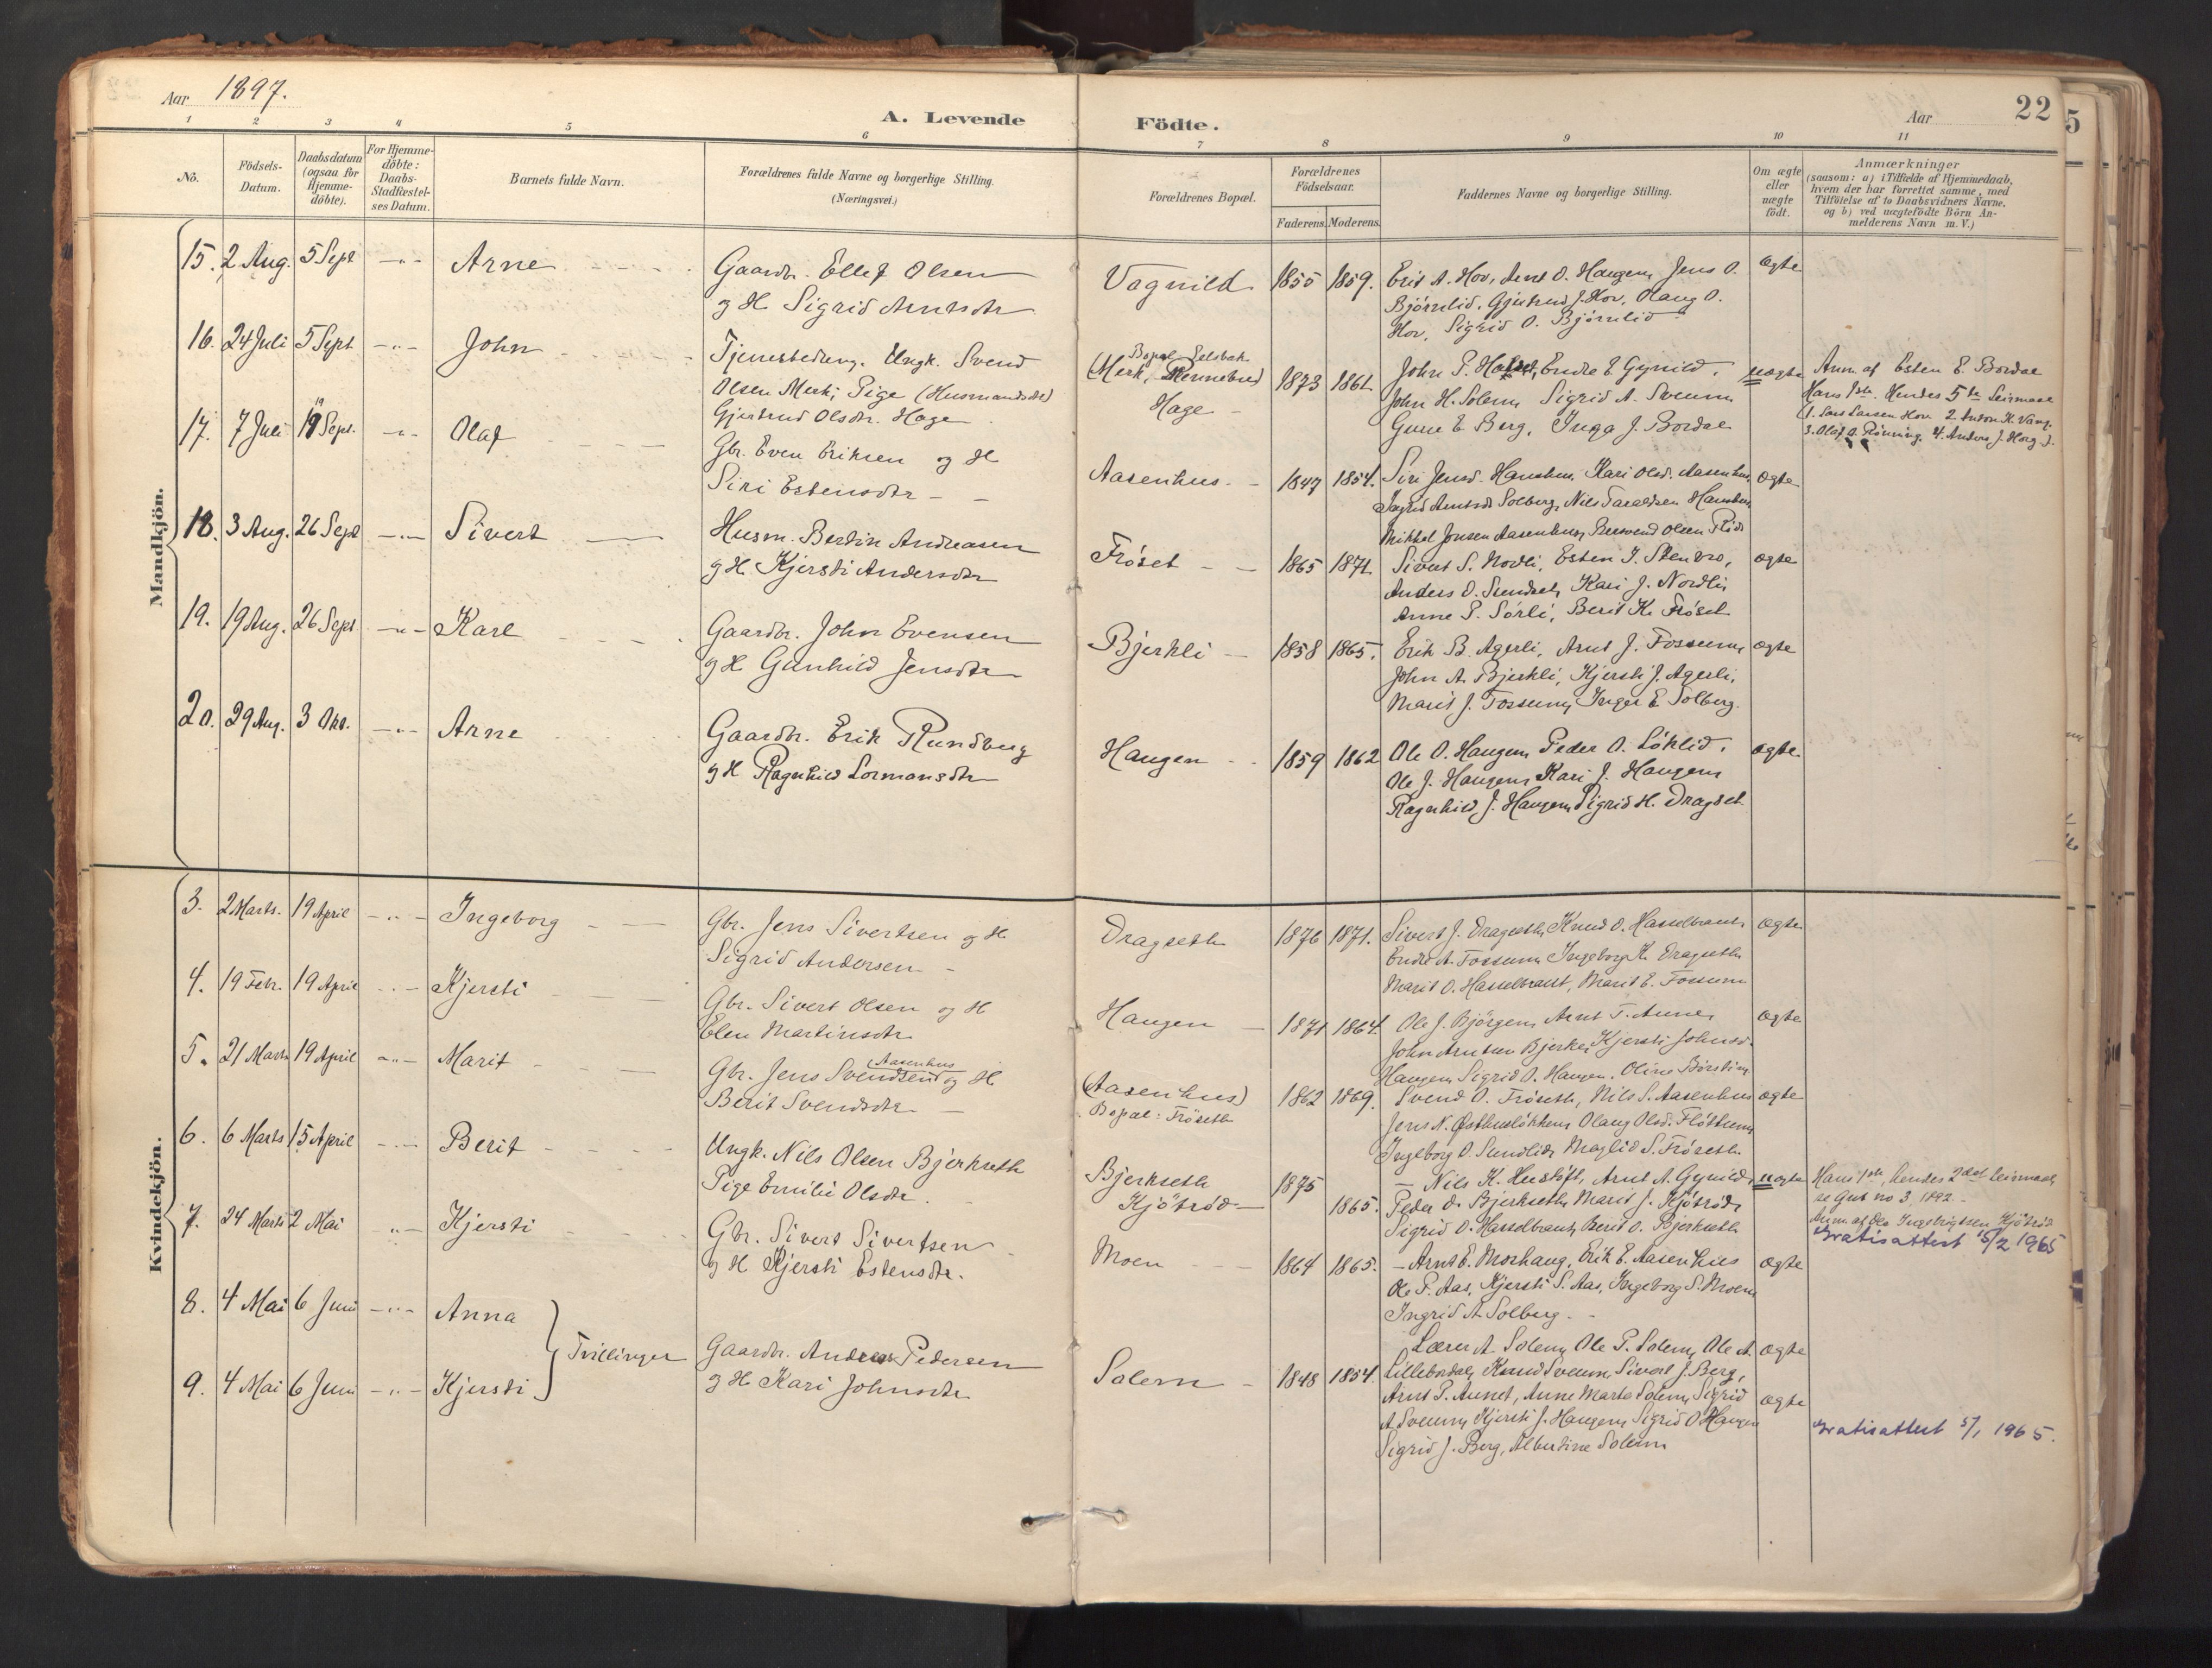 Aar 1897.
A. Levende
Födte.
Aar
22
5
1
2
3
4
5
6
7
8
9
10
11
No.
Födsels-
Datum.
Daabsdatum
(ogsaa for
Hjemme-
döbte).
For Hjemme-
döbte:
Daabs-
Stadfæstel-
ses Datum.
Barnets fulde Navn.
Forældrenes fulde Navne og borgerlige Stilling.
(Næringsvei.)
Forældrenes Bopæl.
Forældrenes
Födselsaar.
Faderens. Moderens.
Faddernes Navne og borgerlige Stilling.
Om ægte
eller
uægte
födt.
Anmærkninger
(saasom: a) i Tilfælde af Hjemmedaab,
hvem der har forrettet samme, med
Tilföielse af to Daabsvidners Navne,
og b) ved uægtefödte Börn An-
melderens Navn m. V.)
Mandkjön.
15. 2 Aug. 5 Sept -"- Arne
Gaardbr. Ellef Olsen
og H Sigrid Arntsdtr
Vognild 1855 1859.
Erik A. Hov, Arnt O. Haugen, Jens O.
Bjørnlid, Gjertrud J. Hov, Olaug O.
Hov, Sigrid O. Bjørnlid
ægte
16. 24 Juli 5 Sept -"- John
Tjenestedreng. Ungk. Svend
Olsen Merk; Pige (Husmandsdtr)
Gjertrud Olsdtr. Hage
Bopæl Selsbak
(Merk, Rennebu)
Hage
1873 1861.
John P. Endre E Gynild,
John H. Solem, Sigrid A. Sveum
Gune E Berg, Inga J. Bordal
uægte
Anm. af Esten E. Bordal
Hans 1ste Hendes 5te Leiermaal
(1. Lars Larsen Hov 2 Anton K. Vang.
3. Olaf O. Rønning. 4. Anders J. Horg
17. 7 Juli 19 Sept. -"- Olaf
Gbr. Even Eriksen og H
Siri Estensdtr
Aasenhus 1847 1854.
Siri Jensd. Kari Olsd. Aasenhus,
Ingrid Arntsd Solberg, Nils
Mikkel Jonsen Aasenhus, Olsen
ægte
18. 3 Aug. 26 Sept -"- Sivert
Husm. Bertin Andreasen
og H Kjersti Andersdtr
Frøset 1865 1871.
Sivert S. Nordli, Esten I. Stenbro,
Anders O. Sundset, Kari J. Nordli,
Anne P. Sørli, Berit K. Frøset
ægte
19. 19 Aug. 26 Sept -"- Karl
Gaardbr. John Evensen
og H Gunhild Jensdtr
Bjerkli 1858 1865.
Erik B. Agerli, Arnt J. Fossum,
John A. Bjerkli, Kjersti J. Agerli,
Marit J. Fossum, Inger E Solberg.
ægte
20. 29 Aug. 3 Okt. -"- Arne
Gaardbr. Erik Rundberg
og H Ragnhild Lormansdtr
Haugen 1859 1862
Ole O. Haugen, Peder O. Løklid,
Ole J. Haugen, Kari J. Haugen,
Ragnhild J. Haugen, Sigrid H. Dragset
ægte
Kvindekjön.
3. 2 Marts. 19 April -"- Ingeborg
Gbr. Jens Sivertsen og H
Sigrid Andersen
Dragseth 1876 1871.
Sivert J. Dragseth, Knud O. Hasselbraut,
Endre A. Fossum, Ingeborg K. Dragseth,
Marit O. Hasselbraut, Marit E. Fossum
ægte
4. 19 Febr. 19 April -"- Kjersti
Gbr. Sivert Olsen og H
Elen Martinsdtr
Haugen 1871 1864.
Ole J. Bjørgen, Arnt T. Aune,
John Arntsen Bjerke, Kjersti Johnsd.
Haugen, Sigrid O. Haugen. Oline
ægte
5. 21 Marts 19 April -"- Marit
Gbr. Jens Svendsen Aasenhus og H
Berit Svendsdtr
(Aasenhus)
Bopæl: Frøseth
1862 1869.
Svend O. Frøseth, Nils S. Aasenhus
Jens N. Østhusløkken, Olaug Olsd. Fløttum,
Ingeborg O. Sundlid, Magli S. Frøseth
ægte
6. 6 Marts 15 April -"- Berit
Ungk. Nils Olsen Bjerkseth
Pige Emilie Olsdtr.
Bjerkseth
Kjøtrød
1875
1865.
Nils K. Arnt A. Gynild,
Peder O. Bjerkseth, Marit J. Kjøtrød,
Sigrid O. Hasselbraut, Berit O. Bjerkseth
uægte
Hans 1ste, hendes 2det Leiermaal,
se Gut no 3 1892.
Anm. af Ole Ingebrigtsen Kjøtrød
Gratisattest 15/2 1965
7. 24 Marts 2 Mai -"- Kjersti
Gbr. Sivert Sivertsen
og H Kjersti Estensdtr.
Moen 1864 1865.
Arnt E. Morhaug, Erik E. Aasenhus
Ole P. Aas, Kjersti S. Aas, Ingeborg S. Moen
Ingrid A Solberg.
ægte
8. 4 Mai 6 Juni -"- Anna
9. 4 Mai 6 Juni -"- Kjersti
Tvillinger
Gaardbr. Anders Pedersen
og H Kari Johnsdtr
Solem 1848 1854.
Lærer A. Solem, Ole P. Solem, Ole A.
Lillebordal, Knud Sveum, Sivert J. Berg,
Arnt P. Aunet, Anne Marta Solem, Sigrid
A. Sveum, Kjersti J. Haugen, Sigrid O Haugen
Sigrid J. Berg, Albertine Solem
ægte
ægte
Gratisattest 5/1 1965.